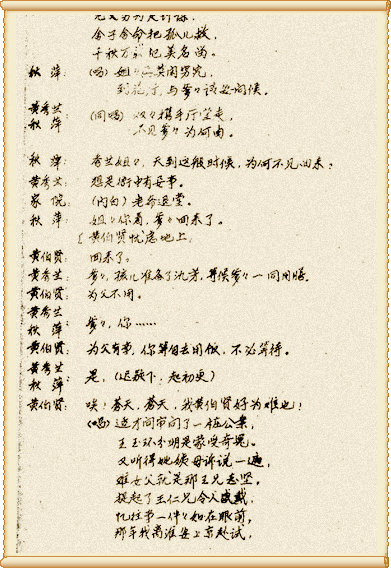 舍子舍命把孤儿救,
千秋万 把美名尚。
秋 萍: (唱) 姐々 英闺男児,
到花厅,与爹々谈安问候。
黄秀兰
秋 萍: (同唱) 双々携手厅堂走,
不见爹々为何由。
秋 萍: 秀兰姐々,天到这般时候,为何不见回来?
黄秀兰: 想是衙中有要事。
家 院: (内白) 老爷退堂。
秋 萍: 姐々你看,爹々回来了。
[黄伯贤忧虑地上。
黄伯贤: 回来了。
黄秀兰: 爹々,孩儿准备了 ,等候爹々一同用膳。
黄伯贤: 为父不用。
黄秀兰
秋 萍: 爹々,你……
黄伯贤: 为父有事,你等自去用饭,不必等待。
黄秀兰
秋 萍: 是,(退最下,起初更)
黄伯贤: 唉!苍天,苍天,我黄伯贤好为难也!
(唱) 适才间审问了一桩公案,
王玉环分明是蒙受奇冤。
又听得她姨母诉说一遍,
难女父就是那王兄志坚。
提起了王仁兄令人感戴,
忆往事一件々如在眼前,
那年我离淮安上京赴试,